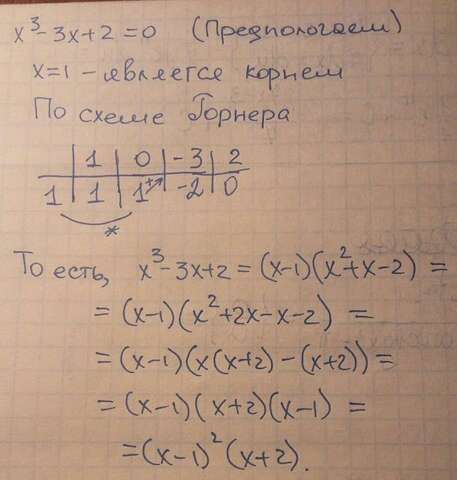 x³-3x+2=0 (Предпологаем)
x=1 - является корнем
По схеме Горнера
1 0 -3 2
1 1 1 -2 0
+
*
То есть, x³-3x+2=(x-1)(x²+x-2)=
=(x-1)(x²+2x-x-2)=
=(x-1)(x(x+2)-(x+2))=
=(x-1)(x+2)(x-1)=
=(x-1)²(x+2).